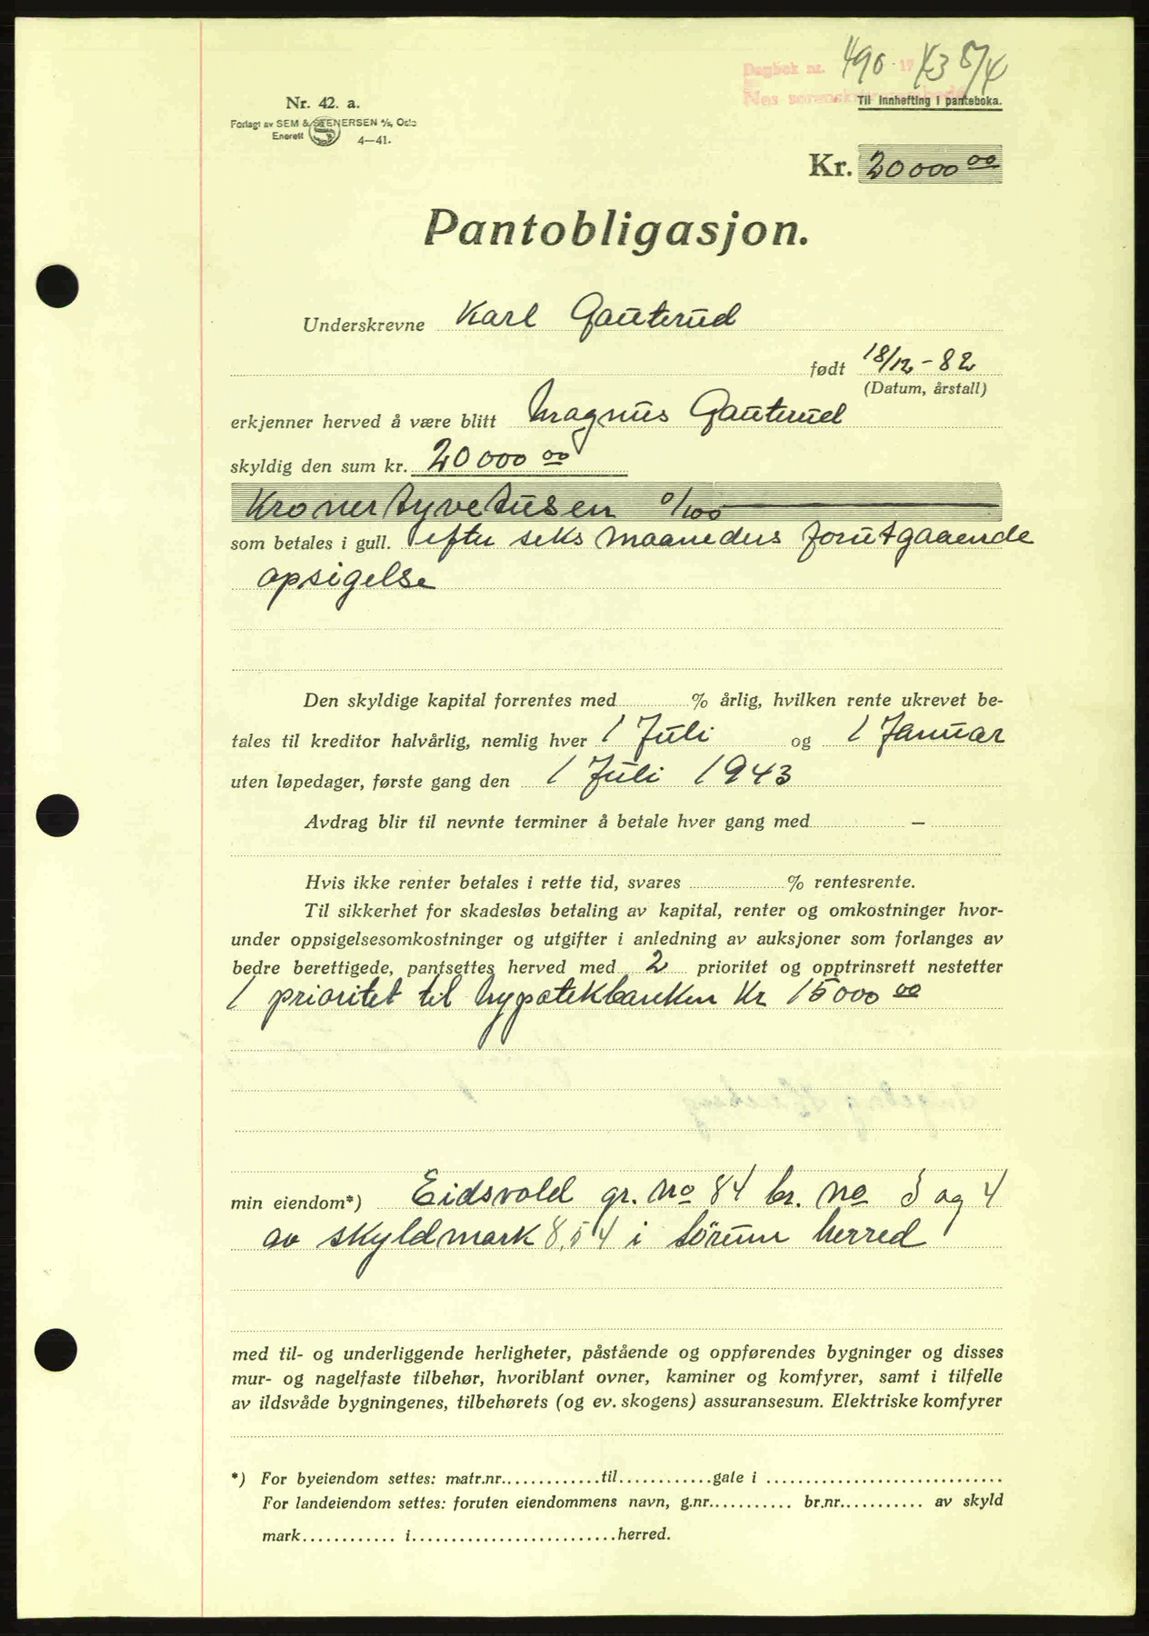 Dagbok nr. 490 · 19 43 5/4
Nes sorenskriverembede
Til innhefting i panteboka.
Nr. 42. a.
Forlagt av SEM & STENERSEN A/S, Oslo
Enerett
4—41.
Kr. 20000 00
Pantobligasjon.
Underskrevne Karl Gauterud
født 18/12 - 82
(Datum, årstall)
erkjenner herved å være blitt Magnus Gauterud
skyldig den sum kr. 20000 00
Kroner tyvetusen 0/100
som betales i gull. efter seks maaneders forutgaaende
opsigelse
Den skyldige kapital forrentes med % årlig, hvilken rente ukrevet be-
tales til kreditor halvårlig, nemlig hver 1 Juli og 1 Januar
uten løpedager, første gang den 1 Juli 1943
Avdrag blir til nevnte terminer å betale hver gang med —
Hvis ikke renter betales i rette tid, svares % rentesrente.
Til sikkerhet for skadesløs betaling av kapital, renter og omkostninger hvor-
under oppsigelsesomkostninger og utgifter i anledning av auksjoner som forlanges av
bedre berettigede, pantsettes herved med 2 prioritet og opptrinsrett nestetter
1 prioritet til hypotekbanken Kr 15000 00
min eiendom*) Eidsvold gr. no 84 br. no 3 og 4
av skyldmark 8,54 i Sørum herred
med til- og underliggende herligheter, påstående og oppførendes bygninger og disses
mur- og nagelfaste tilbehør, hvoriblant ovner, kaminer og komfyrer, samt i tilfelle
av ildsvåde bygningenes, tilbehørets (og ev. skogens) assuransesum. Elektriske komfyrer
*) For byeiendom settes: matr.nr.............til............gate i ..............................
For landeiendom settes: foruten eiendommens navn, g.nr........... br.nr........... av skyld
mark............ i...........................herred.